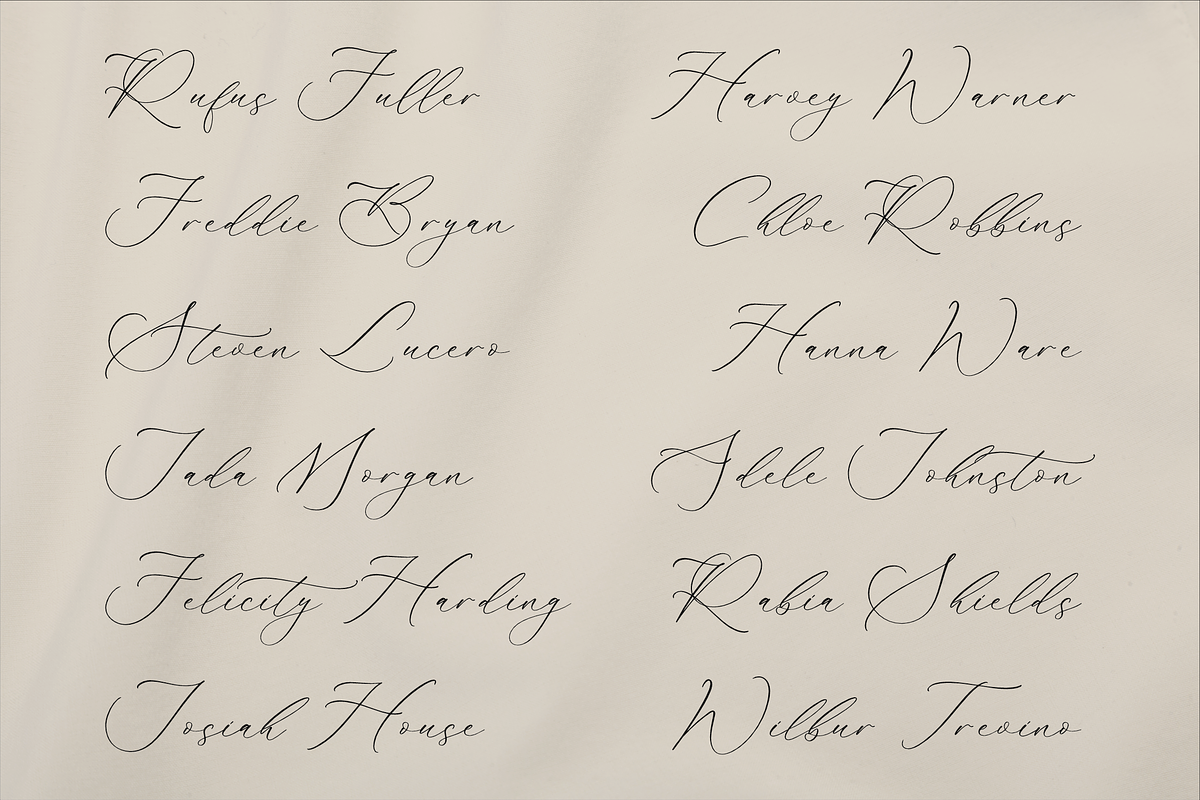 Rufus Fuller
Harvey Warner
Freddie Bryan
Chloe Robbins
Steven Lucero
Hanna Ware
Jada Morgan
Adele Johnston
Felicity Harding
Rabia Shields
Josiah House
Wilbur Trevino